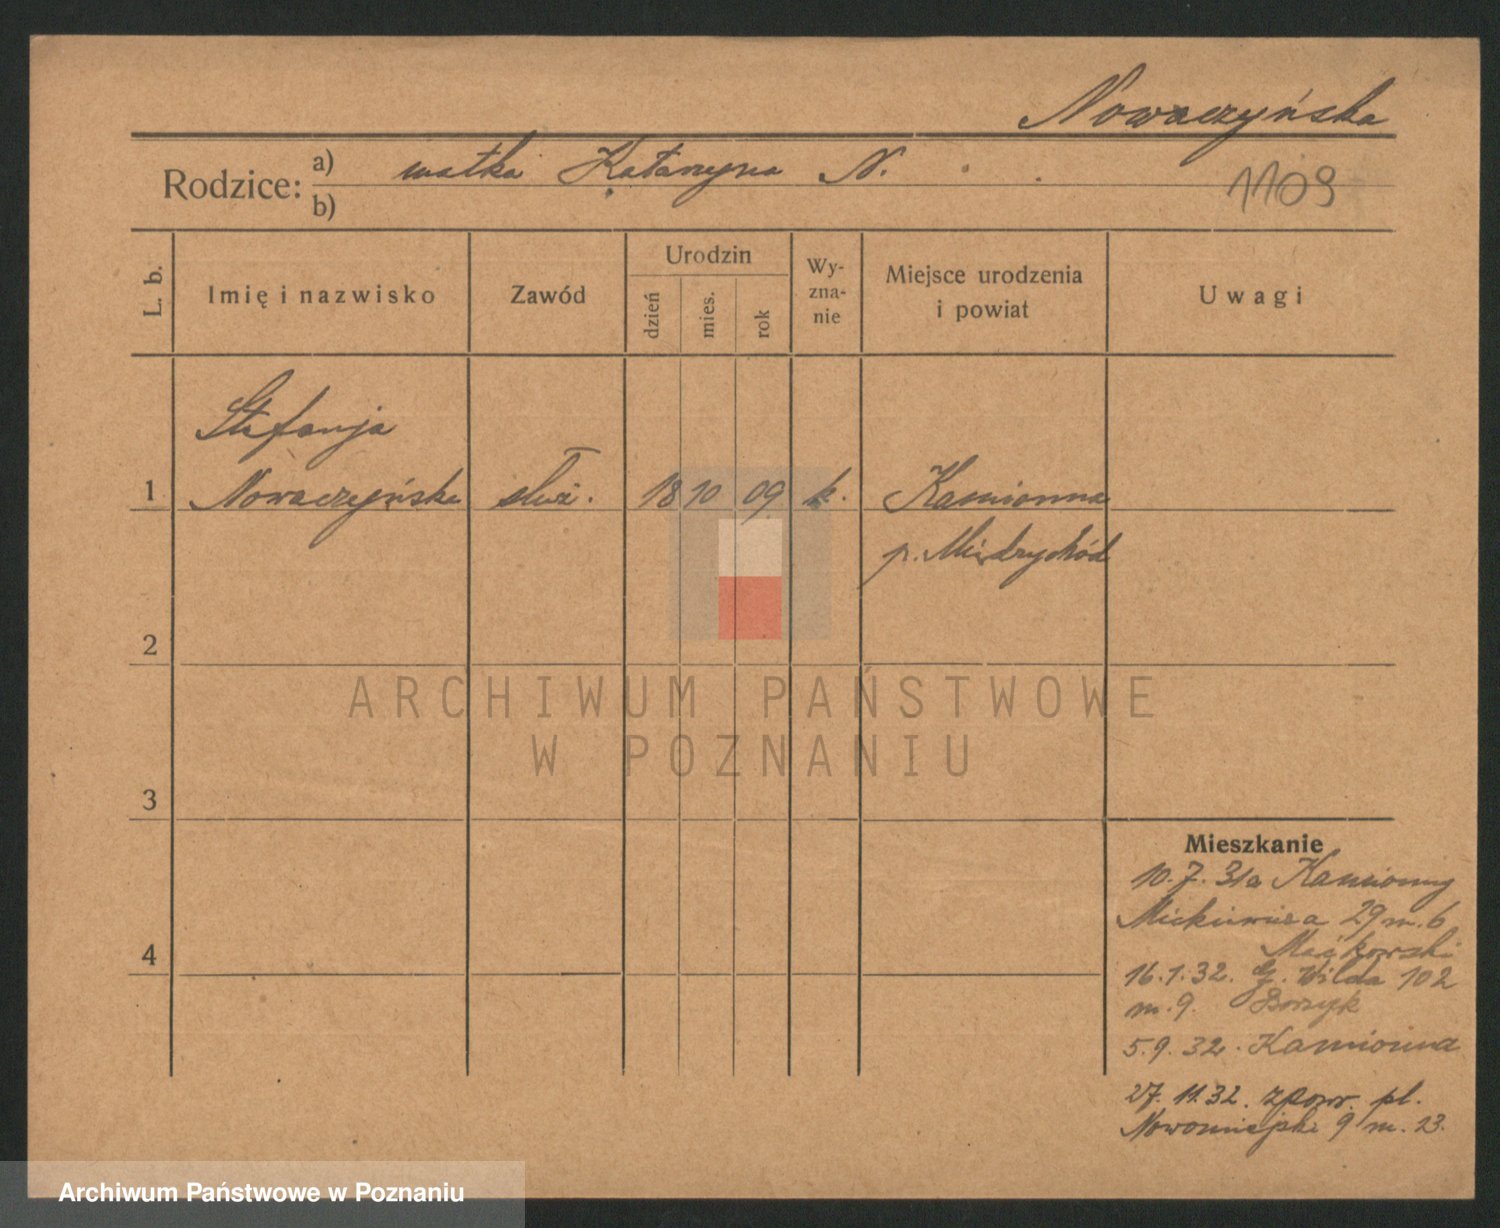 Nowaczyńska
Rodzice: a) matka Katarzyna N.
b)
1109
L. b.
Imię i nazwisko
Zawód
Urodzin
dzień
mies.
rok
Wy-
zna-
nie
Miejsce urodzenia
i powiat
Uwagi
Stefanja
1 Nowaczyńska służ. 18 10 09 k. Kamionna
p. Międrychód
2
3
4
ARCHIWUM PAŃSTWOWE
W POZNANIU
Mieszkanie
10.7.31 a Kamionny
Mickiewicza 29 m. 6
Maćkowski
16.1.32. G. Wilda 102
m. 9. Borzyk
5.9.32. Kamionna
27.11.32. zpowr. pl.
Nowomiejski 9 m. 23.
Archiwum Państwowe w Poznaniu